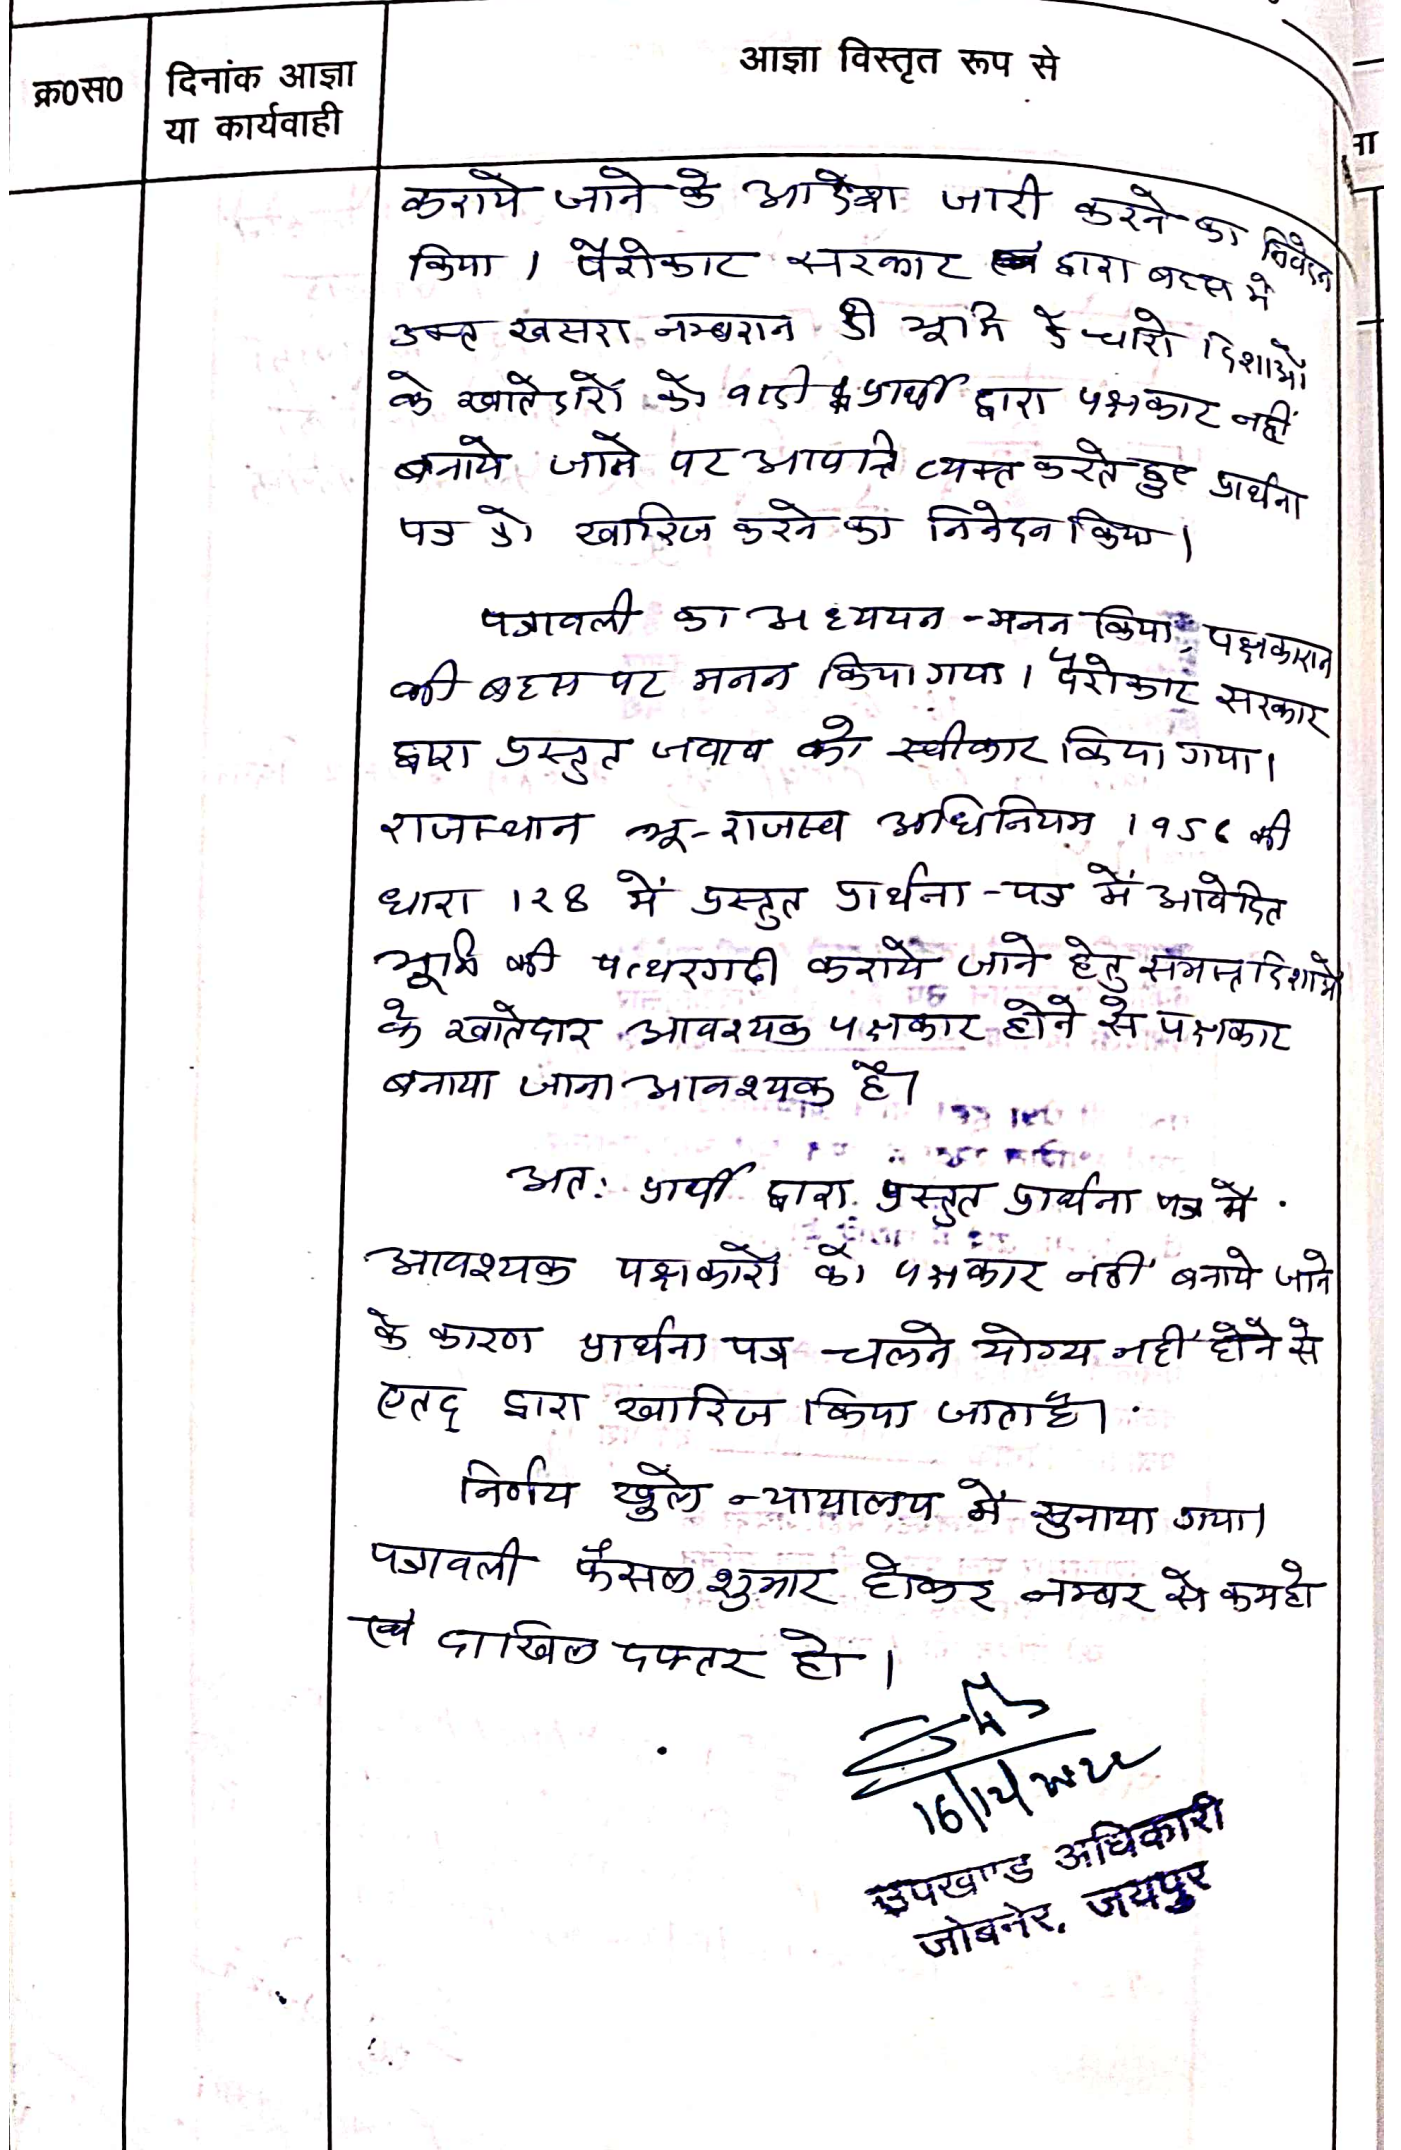 क्र0स0
दिनांक आज्ञा
या कार्यवाही
आज्ञा विस्तृत रूप से
कराये जाने के आदेश जारी करने का निवेदन
किया। पैरोकार सरकार द्वारा बहस में
उक्त खसरा नम्बरान की भूमि के चारों दिशाओं
के खातेदारों को वादी प्रार्थी द्वारा पक्षकार नहीं
बनाये जाने पर आपत्ति व्यक्त करते हुए प्रार्थना
पत्र को खारिज करने का निवेदन किया।
पत्रावली का अध्ययन-मनन किया, पक्षकारान
की बहस पर मनन किया गया। पैरोकार सरकार
द्वारा प्रस्तुत जवाब को स्वीकार किया गया।
राजस्थान भू-राजस्व अधिनियम 1956 की
धारा 128 में प्रस्तुत प्रार्थना-पत्र में आवेदित
भूमि की पत्थरगढी कराये जाने हेतु समस्त दिशाओं
के खातेदार आवश्यक पक्षकार होने से पक्षकार
बनाया जाना आवश्यक है।
अत: प्रार्थी द्वारा प्रस्तुत प्रार्थना पत्र में
आवश्यक पक्षकारों को पक्षकार नहीं बनाये जाने
के कारण प्रार्थना पत्र चलने योग्य नहीं होने से
एतद् द्वारा खारिज किया जाता है।
निर्णय खुले न्यायालय में सुनाया गया।
पत्रावली फैसल शुमार होकर नम्बर से कम हो
एवं दाखिल दफ्तर हो।
उपखण्ड अधिकारी
जोबनेर, जयपुर